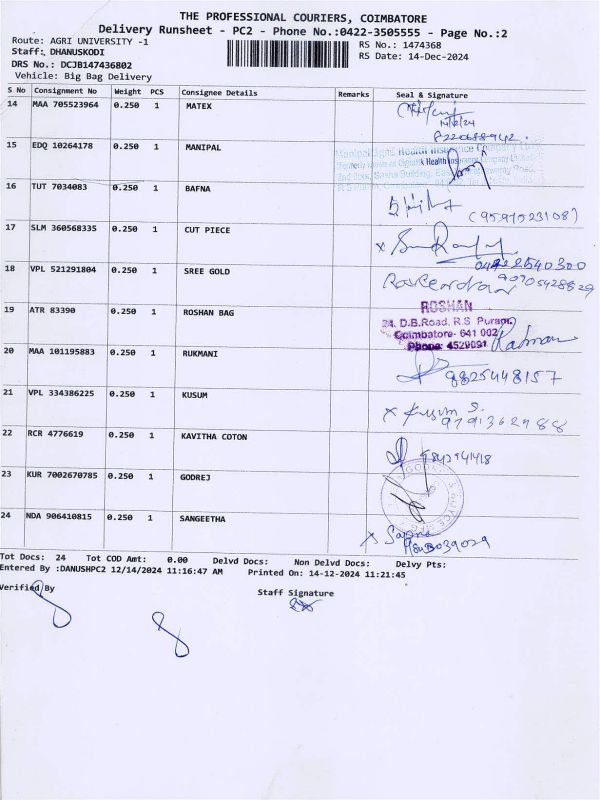 THE PROFESSIONAL COURIERS, COIMBATORE
Delivery Runsheet - PC2 - Phone No.:0422-3505555 - Page No.:2
Route: AGRI UNIVERSITY -1
RS No.: 1474368
Staff: DHANUSKODI
RS Date: 14-Dec-2024
DRS No.: DCJB147436802
Vehicle: Big Bag Delivery
S No Consignment No Weight PCS Consignee Details Remarks Seal & Signature
14 MAA 705523964 0.250 1 MATEX
15 EDQ 10264178 0.250 1 MANIPAL
16 TUT 7034083 0.250 1 BAFNA
(9591523108)
17 SLM 360568335 0.250 1 CUT PIECE
18 VPL 521291804 0.250 1 SREE GOLD
Raveendran
19 ATR 83390 0.250 1 ROSHAN BAG
ROSHAN
24, D.B.Road, R.S. Puram,
Coimbatore- 641 002
Phone: 4529091
20 MAA 101195883 0.250 1 RUKMANI
9825448157
21 VPL 334386225 0.250 1 KUSUM
x Kusum S.
9791362988
22 RCR 4776619 0.250 1 KAVITHA COTON
23 KUR 7002670785 0.250 1 GODREJ
24 NDA 906410815 0.250 1 SANGEETHA
Tot Docs: 24 Tot COD Amt: 0.00 Delvd Docs: Non Delvd Docs: Delvy Pts:
Entered By :DANUSHPC2 12/14/2024 11:16:47 AM Printed On: 14-12-2024 11:21:45
Verified By
Staff Signature